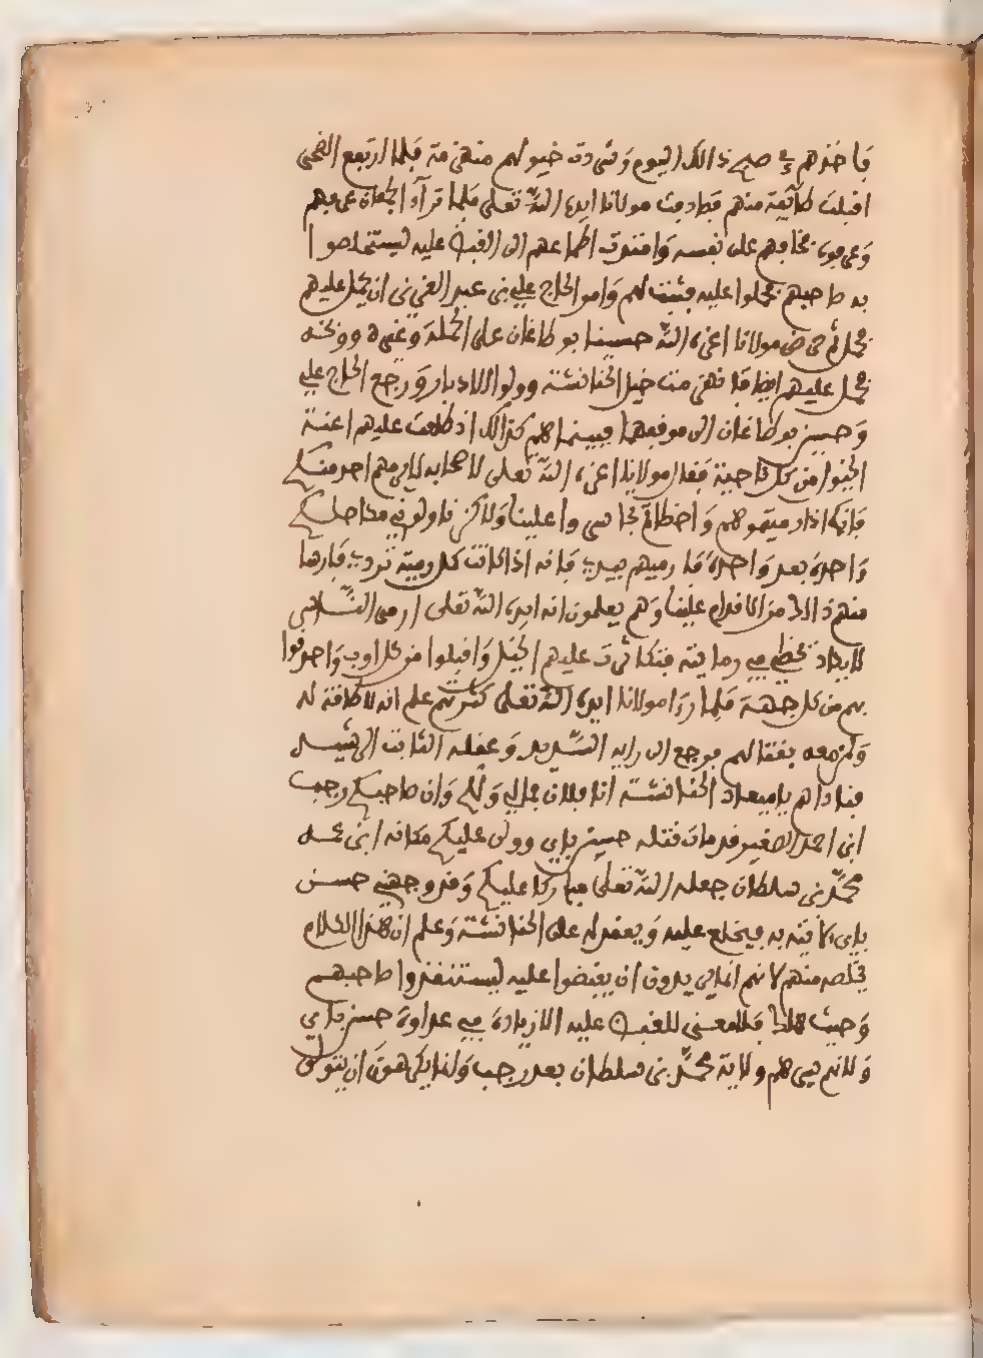 فاخذهم في صبح ذالك اليوم وشردت خيولهم منهزمة فلما ارتفع الضحى
اقبلت طائفة منهم فصادفت مولانا ايده الله تعلى فلما تراءا الجمعان عرفهم
وعرفوه بمخافهم على نفسه وافتوت اطماعهم الى القبض عليه ليستخلصوا
به صاحبهم فحملوا عليه فثبت لهم وامر الحاج علي بن عبد الغني بن ان يحمل عليهم
فحمل ثم حرض مولانا اعزه الله حسينا بو طاغان على الحملة وغيره ووبخه
فحمل عليهم ايضا فانهزمت خيل الحنانشة وولوا الادبار ورجع الحاج علي
وحسين بو طاغان الى موقفهما فبينما هم كذالك اذ طلعت عليهم اعنة
الخيول من كل ناحية فقال مولانا اعزه الله تعلى لاصحابه لا يرمهم احد منكم
فانكم اذا رميتموهم واخطاتم تجاسروا علينا ولاكن ناولوني مكاحلكم
واحدة بعد واحدة فارميهم بيدي فانه اذا كانت كل رمية تردي فارسا
منهم ذالك من الاقدام علينا وهم يعلمون انه ايده الله تعلى ارمى الناس
لا يكاد تخطي رمايته فتكاثرت عليهم الخيل واقبلوا من كل اوب واحدقوا
بهم من كل جهة فلما رءا مولانا ايده الله تعلى كثرتهم علم انه لا طاقة له
ولمن معه بقتالهم فرجع الى رايه السديد وعقله الثابت الرشيد
فناداهم يا ميعاد الحنانشة انا فلان مالي ولكم وان صاحبكم رجب
ابن احمد الصغير قد مات قتله حسين باي وولى عليكم مكانه ابن عمه
محمد بن سلطان جعله الله تعلى مباركا عليكم وقد وجهني حسين
باي لاتيه به فيخلع عليه ويعقد له على الحنانشة وعلم ان هذا الكلام
يخلصه منهم لانهم انما يريدون ان يقبضوا عليه ليستنقذوا صاحبهم
وحيث هلك فلا معنى للقبض عليه الا زيادة في عداوة حسين باي
ولانهم سرهم ولاية محمد بن سلطان بعد رجب ولما يكرهون ان يتولى